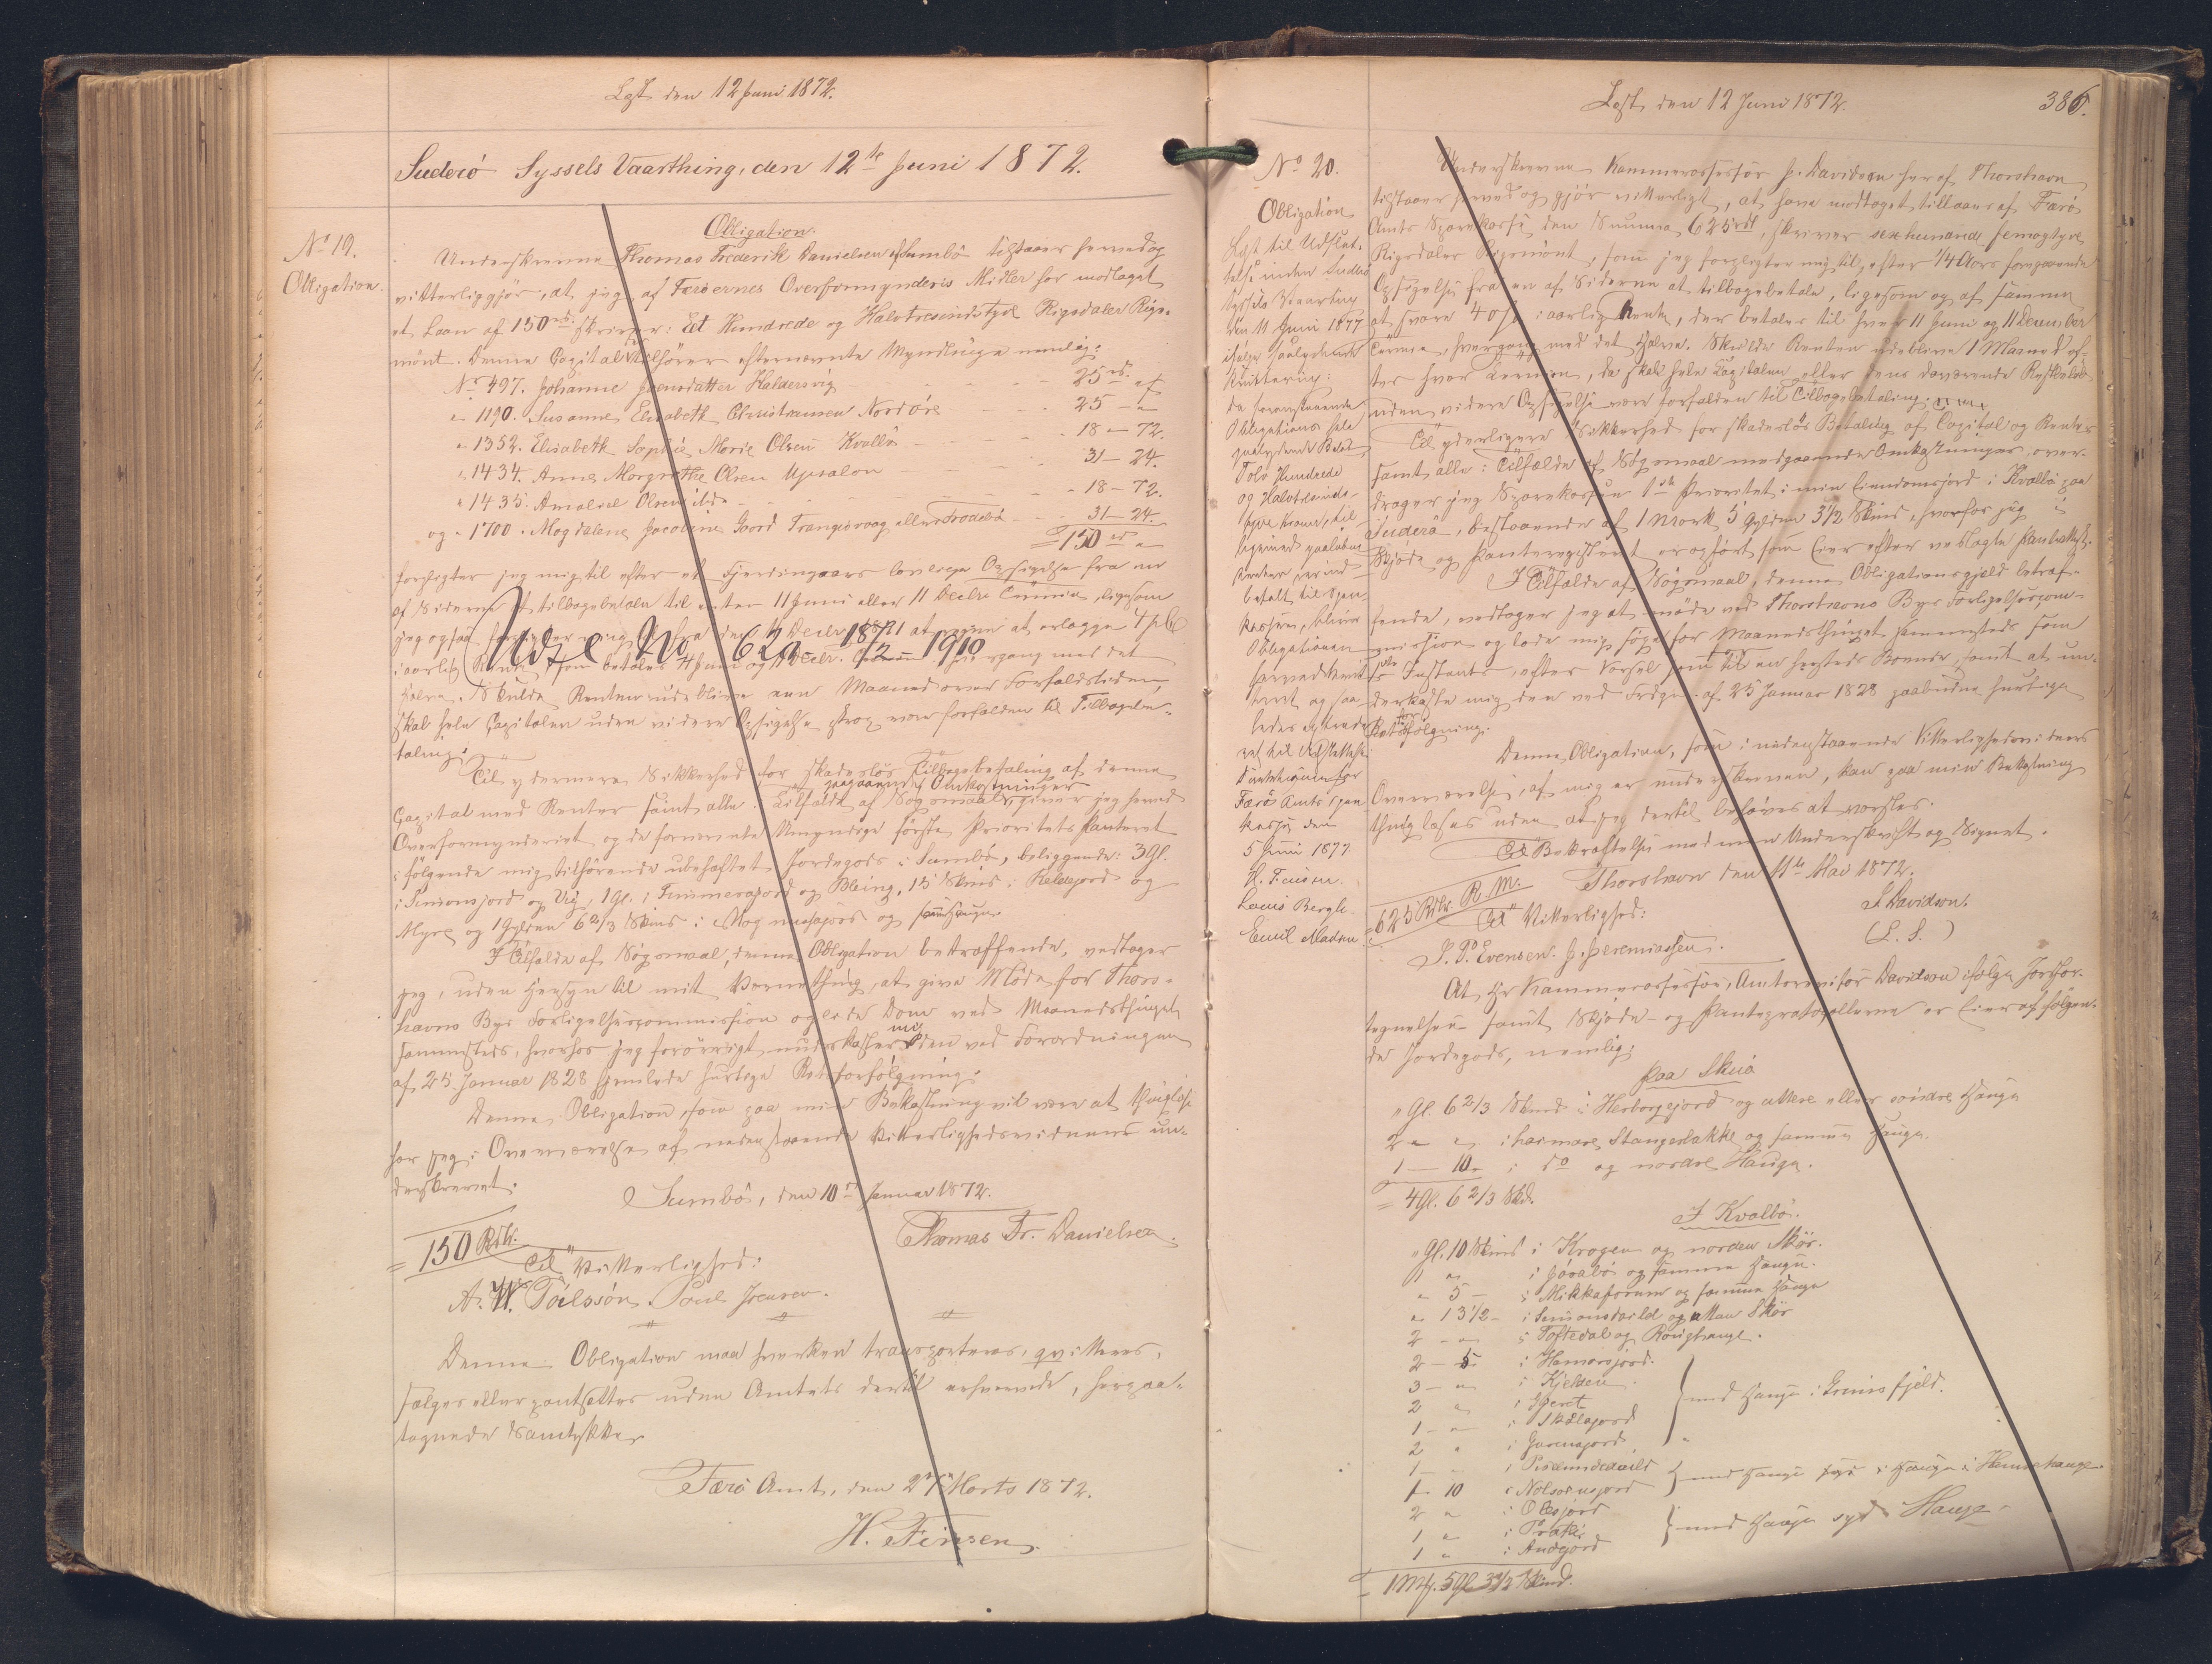 Læst den 12 Juni 1872.
Suderö Syssels Vaarthing, den 12te Juni 1872.
No 19.
Obligation.
Obligation.
Underskrevne Thomas Frederik Danielsen af Sumbö tilstaaer herved og
vitterliggjör, at jeg af Færöernes Overformynderis Midler har modtaget
et Laan af 150 rd. skriver: Eet Hundrede og Halvtresindstyve Rigsdaler Rigs-
mönt. Denne Capital tilhörer efternævnte Myndlinge nemlig:
No 497. Johanne Joensdatter Haldersvig - - - 25 rd. „ f
„ 1190. Susanne Elisabeth Christiansen Nordöre - - - 25 - „
„ 1352. Elisabeth Sophie Marie Olsen Kvalbö - - - 18 - 72.
„ 1434. Anne Margrethe Olsen Upsalon - - - 31 - 24.
„ 1435. Amaliel Olsen ibd. - - - 18 - 72.
og „ 1700. Magdalene Jacobine Joord Trangisvaag eller Frodebö - - - 31 - 24.
= 150 rd. „
forpligter jeg mig til efter et Fjerdingaars lovlig Opsigelse fra en
af Siderne at tilbagebetale til enten 11 Juni eller 11 Decbr. Termin, ligesom
jeg ogsaa forpligter mig til fra den 11 Decbr. 1871 at regne at erlægge 4 pCt
i aarlig Rente, som betales 11 Juni og 11 Decbr. Termin hver gang med det
Udsl. No 62a - 12 1910
halve. Skulde Renten udeblive een Maaned over Forfaldstiden,
skal hele Capitalen uden videre Opsigelse strax være forfalden til Tilbagebe-
taling.
Til ydermere Sikkerhed for skadeslös Tilbagebetaling af denne
paagaaende Omkostninger
Capital med Renter samt alle i Tilfælde af Sögsmaal, giver jeg herved
Overformynderiet og de fornævnte Umyndige förste Prioritets Panteret
i fölgende mig tilhörende ubehæftet Jordegods i Sumbö, beliggende: 3 Gl.
i Simonsjord og Vig, 1 Gl. i Trimmerajord og Bleing, 15 Skind i Keldejord og
Myre og 1 Gylden 6 2/3 Skind i Mog musajors og samhauge.
I Tilfælde af Sögsmaal, denne Obligation betræffende, vedtager
jeg, uden Hensyn til mit Værnething, at give Möde for Thors-
havns Byes Forligelsescommission og lide Dom ved Maanedsthinget
sammesteds, hvorhos jeg forövrigt underkaster mig den ved Forordningen
af 25. Januar 1828 hjemlede hurtige Retsforfölgning.
Denne Obligation, som paa min Bekostning vil være at thinglæse
har jeg i Overværelse af nedenstaaende Vitterlighedsvidner un-
derskrevet.
Sumbö, den 10de Januar 1872.
Thomas Fr. Danielsen.
= 150 Rdlr.
Til Vitterlighed:
A. W. Poulssön. Poul Joensen.
Denne Obligation maa hverken transporteres, qvitteres,
sælges eller pantsættes uden Amtets dertil erhvervede, herpaa-
tegnede Samtykke.
Færö Amt, den 27 Marts 1872.
H. Finsen.
Læst den 12 Juni 1872.
386.
No 20.
Obligation
Læst til Udslet-
telse inden Suderö
Syssels Vaarting
den 11 Juni 1877
ifölge saalydende
Kvittering:
Da foranstaaende
Obligations hele
paalydende Belöb
Tolv Hundrede
og Halvtredsinds-
tyve Kroner, til-
ligemed paalöbne
Renter, er ind-
betalt til Spar-
kassen, bliver
Obligationen
herved kvit-
teret og saa-
ledes at
Direktionen for
Færö Amts Spare-
kasse den
5 Juni 1877.
H. Finsen.
Louis Bergh.
Emil Madsen
Underskrevne Kammerassessor J. Davidsen her af Thorshavn
tilstaaer herved og gjör vitterligt, at have modtaget tillaans af Færö
Amts Sparekasse den Summa 625 rdl, skriver sexhundrede femogtyve
Rigsdaler Rigsmönt, som jeg forpligter mig til, efter 1/4 Aars foregaaende
Opsigelse fra en af Siderne at tilbagebetale, ligesom og af samme
at svare 4 o/o i aarlig Rente, der betales til hver 11 Juni og 11 December
Termin, hvergang med det Halve. Skulde Renten udeblive 1 Maaned ef-
ter hver Termin, da skal hele Capitalen eller dens daværende Restbelöb
uden videre Opsigelse være forfalden til Tilbagebetaling.
Til yderligere Sikkerhed for skadeslös Betaling af Capital og Renter
samt alle i Tilfælde af Sögsmaal medgaaende Omkostninger, over-
drager jeg Sparekassen 1ste Prioritet i min Eiendomsjord i Kvalbö paa
Suderö, bestaaende af 1 Mark 5 Gylden 3 1/2 Skind, hvorfor jeg i
Skjöde og Panteregistret er opfört som Eier efter vedlagte Panteattest.
I Tilfælde af Sögsmaal, denne Obligationsgjæld betræf-
fende, vedtager jeg at möde ved Thorshavns Byes Forligelsescom-
mission og lade mig söge for Maanedsthinget sammesteds som
1ste Instants, efter Varsel som til en herteds Boende, samt at un-
derkaste mig den ved Frdgn. af 25 Januar 1828 paabudne hurtige
Retsforfölgning.
Denne Obligation, som i nedenstaaende Vitterlighedsvidners
Overværelse, af mig er underskreven, kan paa min Bekostning
thinglæses uden at jeg dertil behöves at varsles.
Til Bekræftelse med min Underskrift og Signet.
Thorshavn den 11te Mai 1872.
= 625 Rdlr. R. M.
J. Davidsen.
(L. S.)
Til Vitterlighed:
J. P. Evensen. J. Jeremiassen.
At Hr. Kammerassessor, Amtsrevisor Davidsen ifölge Jordfor-
tegnelsen samt Skjöde- og Panteprotocollerne er Eier af fölgen-
de Jordegods, nemlig:
paa Skuö
„ Gl. 6 2/3 Skind i Herborgejord og uttere eller söndre Hauge
2 „ „ i harmare Stangerlakke og samme Hauge.
1 — 10 „ i do og nordre Hauge.
= 4 Gl. 6 2/3 Skd.
I Kvalbö.
„ Gl. 10 Skind i Krogen og norden Skör.
1 „ i Jövabö og samme Hauge.
„ 5 — i Mikkaforum og samme Hauge
„ 13 1/2 - i Simonstvild og uttan Skör
2 - „ i Toftedal og Roughauge.
2 — 5 i Hamarsjord.
3 - „ i Kjelden
2 „ i Gjeret
1 - „ i Skålajord
2 „ i Garensjord
med Hauge i Grims fjeld.
1 - i
1 - 10 i Nolsoensjord
2 „ i Olesjord
1 „ i Trökir
1 „ i Andejord
med Hauge syd i Hauge
= 1 Mk. 5 Gl 3 1/2 Skind.